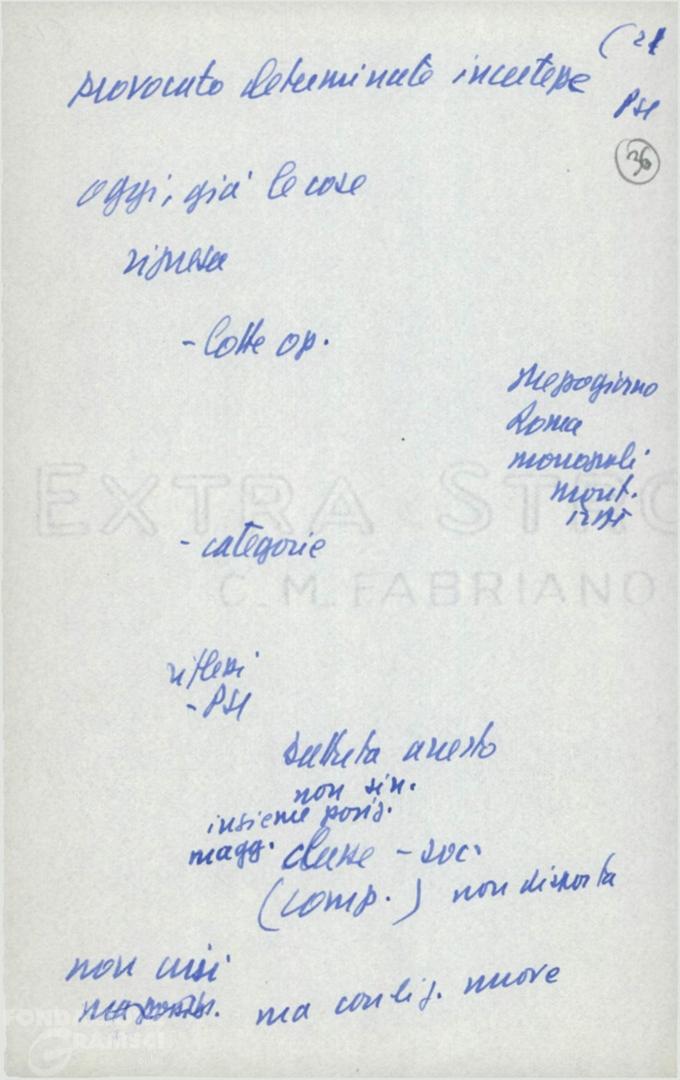 (21
provocato determinate incertezze
PSI
36
oggi, già le cose
ripresa
- lotte op.
Mezzogiorno
Roma
monopoli
mont.
EXTRA STRO
- categorie
C.M.FABRIANO
riflessi
- PSI
battuta arresto
non sin.
insieme posiz.
magg. classe - soc.
(comp.) non disposta
non crisi
ma config. nuove
FONDAZIONE
GRAMSCI